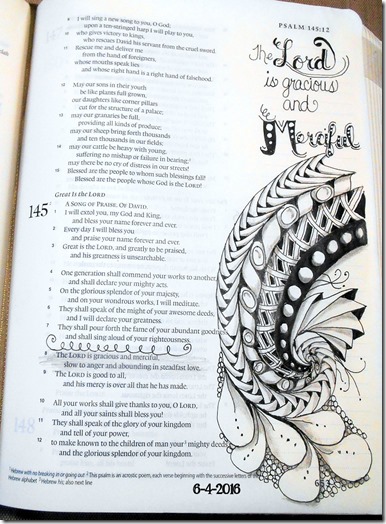 9 I will sing a new song to you, O God;
upon a ten-stringed harp I will play to you,
10 who gives victory to kings,
who rescues David his servant from the cruel sword.
11 Rescue me and deliver me
from the hand of foreigners,
whose mouths speak lies
and whose right hand is a right hand of falsehood.
12 May our sons in their youth
be like plants full grown,
our daughters like corner pillars
cut for the structure of a palace;
13 may our granaries be full,
providing all kinds of produce;
may our sheep bring forth thousands
and ten thousands in our fields;
14 may our cattle be heavy with young,
suffering no mishap or failure in bearing;
may there be no cry of distress in our streets!
15 Blessed are the people to whom such blessings fall!
Blessed are the people whose God is the LORD!
Great Is the LORD
A SONG OF PRAISE. OF DAVID.
145 I will extol you, my God and King,
and bless your name forever and ever.
2 Every day I will bless you
and praise your name forever and ever.
3 Great is the LORD, and greatly to be praised,
and his greatness is unsearchable.
4 One generation shall commend your works to another,
and shall declare your mighty acts.
5 On the glorious splendor of your majesty,
and on your wondrous works, I will meditate.
6 They shall speak of the might of your awesome deeds,
and I will declare your greatness.
7 They shall pour forth the fame of your abundant goodness
and shall sing aloud of your righteousness.
8 The LORD is gracious and merciful,
slow to anger and abounding in steadfast love.
9 The LORD is good to all,
and his mercy is over all that he has made.
10 All your works shall give thanks to you, O LORD,
and all your saints shall bless you!
11 They shall speak of the glory of your kingdom
and tell of your power,
12 to make known to the children of man your mighty deeds,
and the glorious splendor of your kingdom.
Hebrew with no breaking in or going out This psalm is an acrostic poem, each verse beginning with the successive letters of the
Hebrew alphabet Hebrew his; also next line
PSALM 145:12
The Lord
is gracious
and
Merciful
6-4-2016